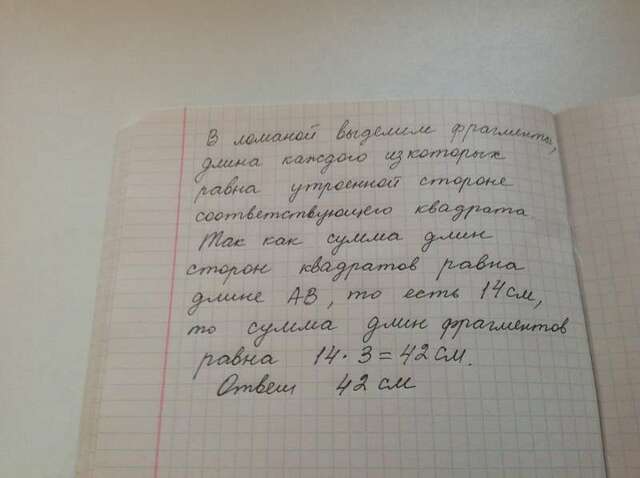 В ломаной выделим фрагменты,
длина каждого из которых
равна утроенной стороне
соответствующего квадрата
Так как сумма длин
сторон квадратов равна
длине АВ, то есть 14 см,
то сумма длин фрагментов
равна 14 · 3 = 42 см.
Ответ 42 см